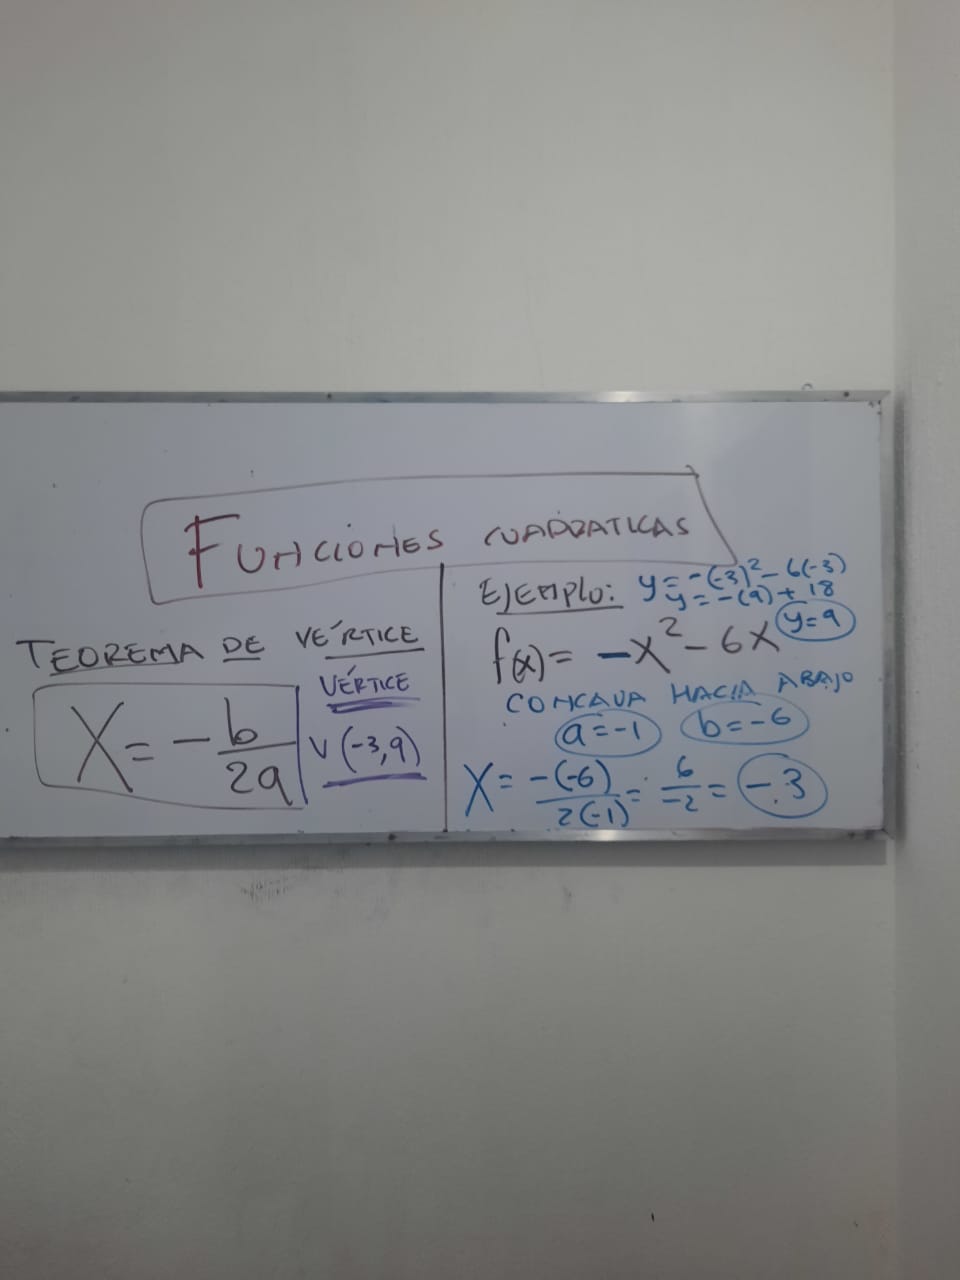 FUNCIONES CUADRATICAS
TEOREMA DE VÉRTICE
X = -b/2a
VÉRTICE
V (-3,9)
EJEMPLO:
y = -(-3)² - 6(-3)
y = -(9) + 18
y=9
f(x) = -x² - 6x
CONCAVA HACIA ABAJO
a=-1 b=-6
X = -(-6)/2(-1) = 6/-2 = -3